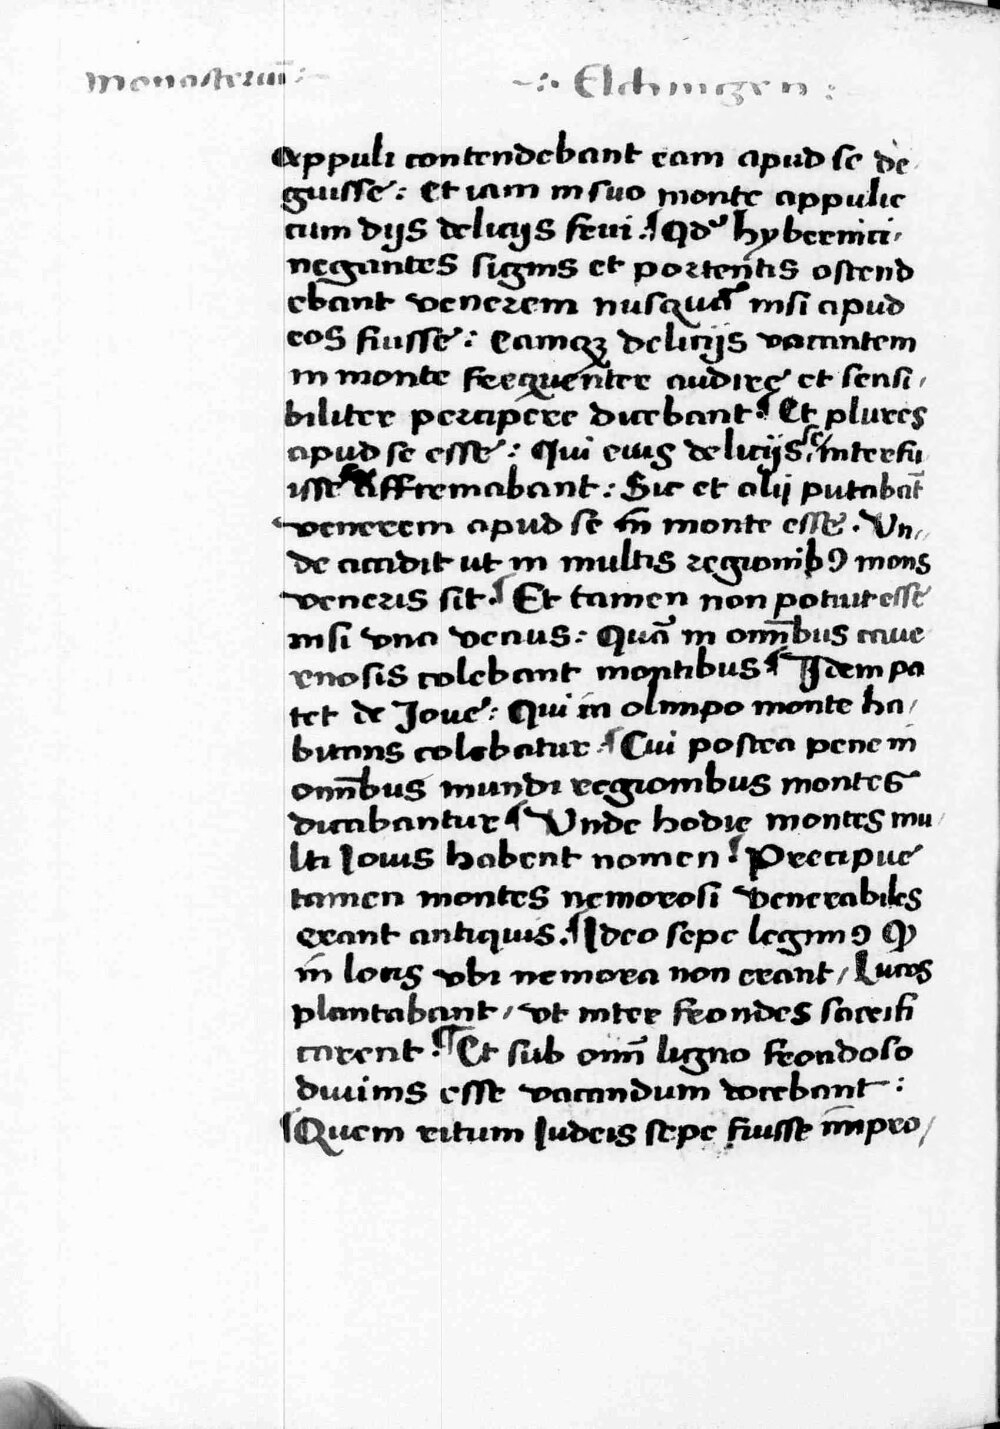 Monasteriū : ~ ~ :· Elchingen :
Appuli contendebant eam apud se de
guisse : Et iam in suo monte appulie
cum dijs delicijs frui : Qd' hybernici,
negantes signis et portentis ostend
ebant venerem nusquā nisi apud
eos fuisse : Eamqꝫ delicijs vacantem
in monte frequenter audire et sensi,
biliter percipere dicebant : Et plures
apud se esse : Qui eius delicijs se interfu
isse affirmabant : Sic et alij putabāt
venerem apud se in monte esse . Un,,
de accidit ut in multis regionibꝰ mons
veneris sit . Et tamen non potuit esse
nisi una venus : Quā in omībus cave
rnosis colebant montibus Idem pa
tet de Jove : Qui in olimpo monte ha,
bitans colebatur : Cui postea pene in
omībus mundi regionibus montes
dicabantur Unde hodie montes mu
lti Jovis habent nomen : Precipue
tamen montes nemorosi venerabiles
erant antiquis . Ideo sepe legimꝰ ꝙ
in locis ubi nemora non erant / Lucos
plantabant / ut inter frondes sacrifi
carent : Et sub omī ligno frondoso
divinis esse vacandum docebant :
Quem ritum Judeis sepe fuisse īmpro/